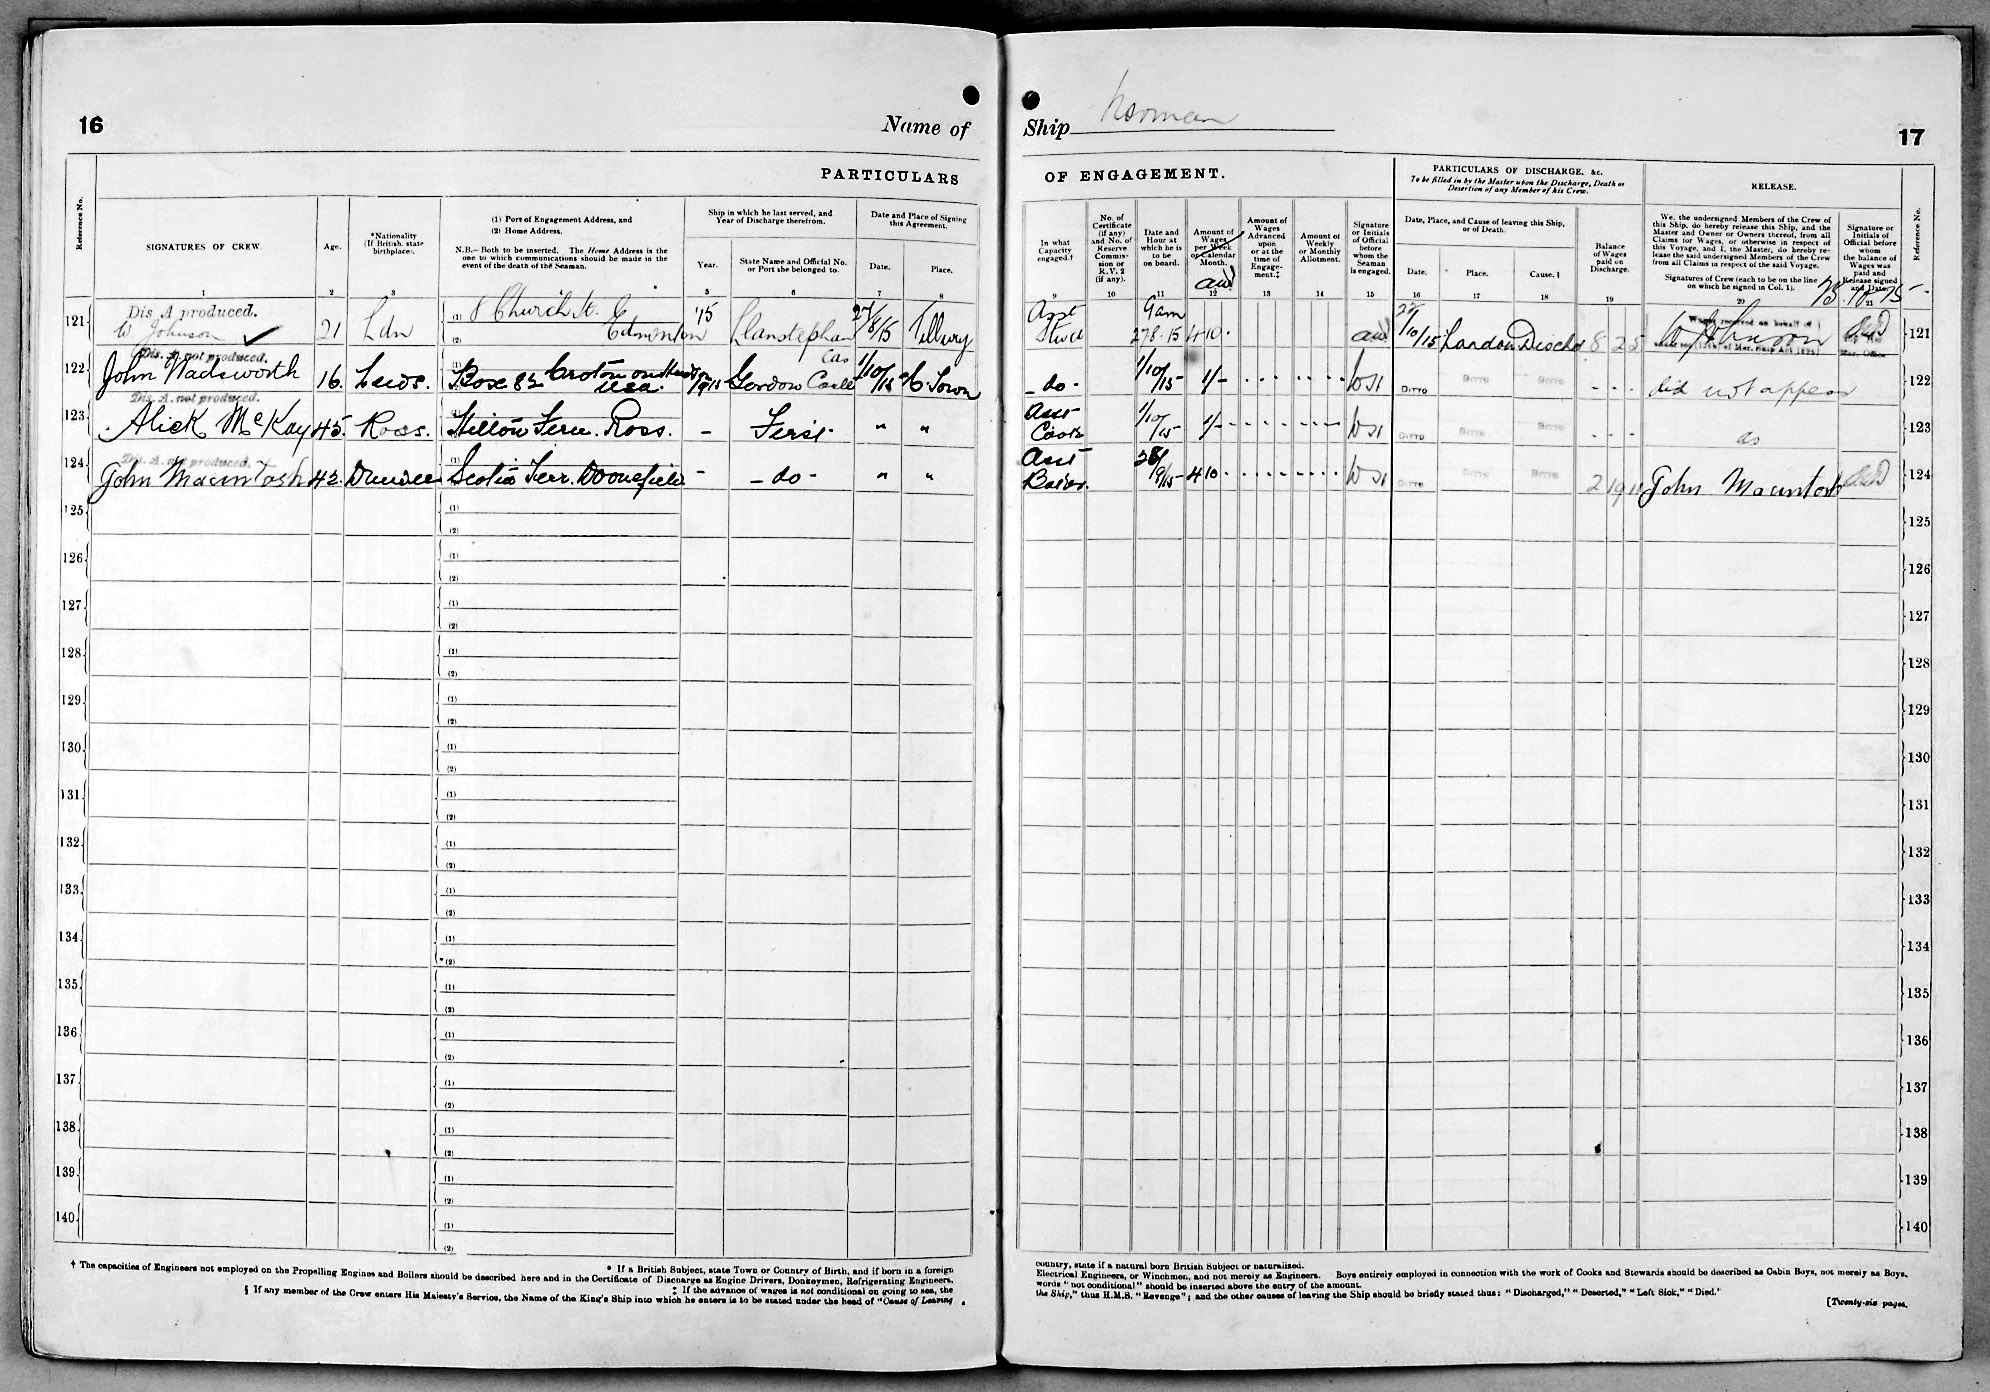 16
Name of
Ship Norman
17
PARTICULARS
OF ENGAGEMENT.
PARTICULARS OF DISCHARGE, &c.
To be filled in by the Master upon the Discharge, Death or
Desertion of any Member of his Crew.
RELEASE.
Reference No.
SIGNATURES OF CREW.
Age.
*Nationality
(If British, state
birthplace).
(1) Port of Engagement Address, and
(2) Home Address.
N.B.—Both to be inserted. The Home Address is the
one to which communications should be made in the
event of the death of the Seaman.
Ship in which he last served, and
Year of Discharge therefrom.
Year.
State Name and Official No.
or Port she belonged to.
Date and Place of Signing
this Agreement.
Date.
Place.
In what
Capacity
engaged.†
No. of
Certificate
(if any)
and No. of
Reserve
Commis-
sion or
R.V. 2
(if any).
Date and
Hour at
which he is
to be
on board.
Amount of
Wages
per Week
or Calendar
Month.
Amount of
Wages
Advanced
upon
or at the
time of
Engage-
ment.‡
Amount of
Weekly
or Monthly
Allotment.
Signature
or Initials
of Official
before
whom the
Seaman
is engaged.
Date, Place, and Cause of leaving this Ship,
or of Death.
Date.
Place.
Cause. §
Balance
of Wages
paid on
Discharge.
We, the undersigned Members of the Crew of
this Ship, do hereby release this Ship, and the
Master and Owner or Owners thereof, from all
Claims for Wages, or otherwise in respect of
this Voyage, and I, the Master, do hereby re-
lease the said undersigned Members of the Crew
from all Claims in respect of the said Voyage.
Signatures of Crew (each to be on the line
on which he signed in Col. 1).
Signature or
Initials of
Official before
whom
the balance of
Wages was
paid and
Release signed
and Date.
Reference No.
1 2 3 4 5 6 7 8 9 10 11 12 13 14 15 16 17 18 19 20 21
121 Dis A produced.
W Johnson 21 Ldn (1) 8 Church St. (2) Edmonton 15 Llanstephan Cas 27/8/15 Tilbury Asst Stwd 9am 27 8.15 4 10 22/10/15 London Dischd 8 2 5 W Johnson 121
122 Dis. A. not produced.
John Wadsworth 16. Leeds. Box 82 Croton on Hudson USA. 1915 Gordon Castle 1/10/15 C Town -do- 1/10/15 1/- DITTO DITTO DITTO did not appear 122
123 Dis. A. not produced.
Alick McKay 45. Ross. Hilton Fern. Ross. - First " " Asst Cook 1/10/15 1/- DITTO DITTO DITTO do 123
124 Dis. A. not produced.
John Macintosh 42. Dundee Scotia Terr. Doonefield - -do- " " Asst Baker. 28/9/15 4 10 DITTO DITTO DITTO 2 19 11 John Macintosh 124
125 (1) (2) 125
126 (1) (2) 126
127 (1) (2) 127
128 (1) (2) 128
129 (1) (2) 129
130 (1) (2) 130
131 (1) (2) 131
132 (1) (2) 132
133 (1) (2) 133
134 (1) (2) 134
135 (1) (2) 135
136 (1) (2) 136
137 (1) (2) 137
138 (1) (2) 138
139 (1) (2) 139
140 (1) (2) 140
* If a British Subject, state Town or Country of Birth, and if born in a foreign
country, state if a natural born British Subject or naturalised.
† The capacities of Engineers not employed on the Propelling Engines and Boilers should be described here and in the Certificate of Discharge as Engine Drivers, Donkeymen, Refrigerating Engineers,
Electrical Engineers, or Winchmen, and not merely as Engineers. Boys entirely employed in connection with the work of Cooks and Stewards should be described as Cabin Boys, not merely as Boys.
‡ If the advance of wages is not conditional on going to sea, the
words "not conditional" should be inserted above the entry of the amount.
§ If any member of the Crew enters His Majesty's Service, the Name of the King's Ship into which he enters is to be stated under the head of "Cause of Leaving
the Ship," thus H.M.S. "Revenge"; and the other causes of leaving the Ship should be briefly stated thus: "Discharged," "Deserted," "Left Sick," "Died."
[Twenty-six pages.